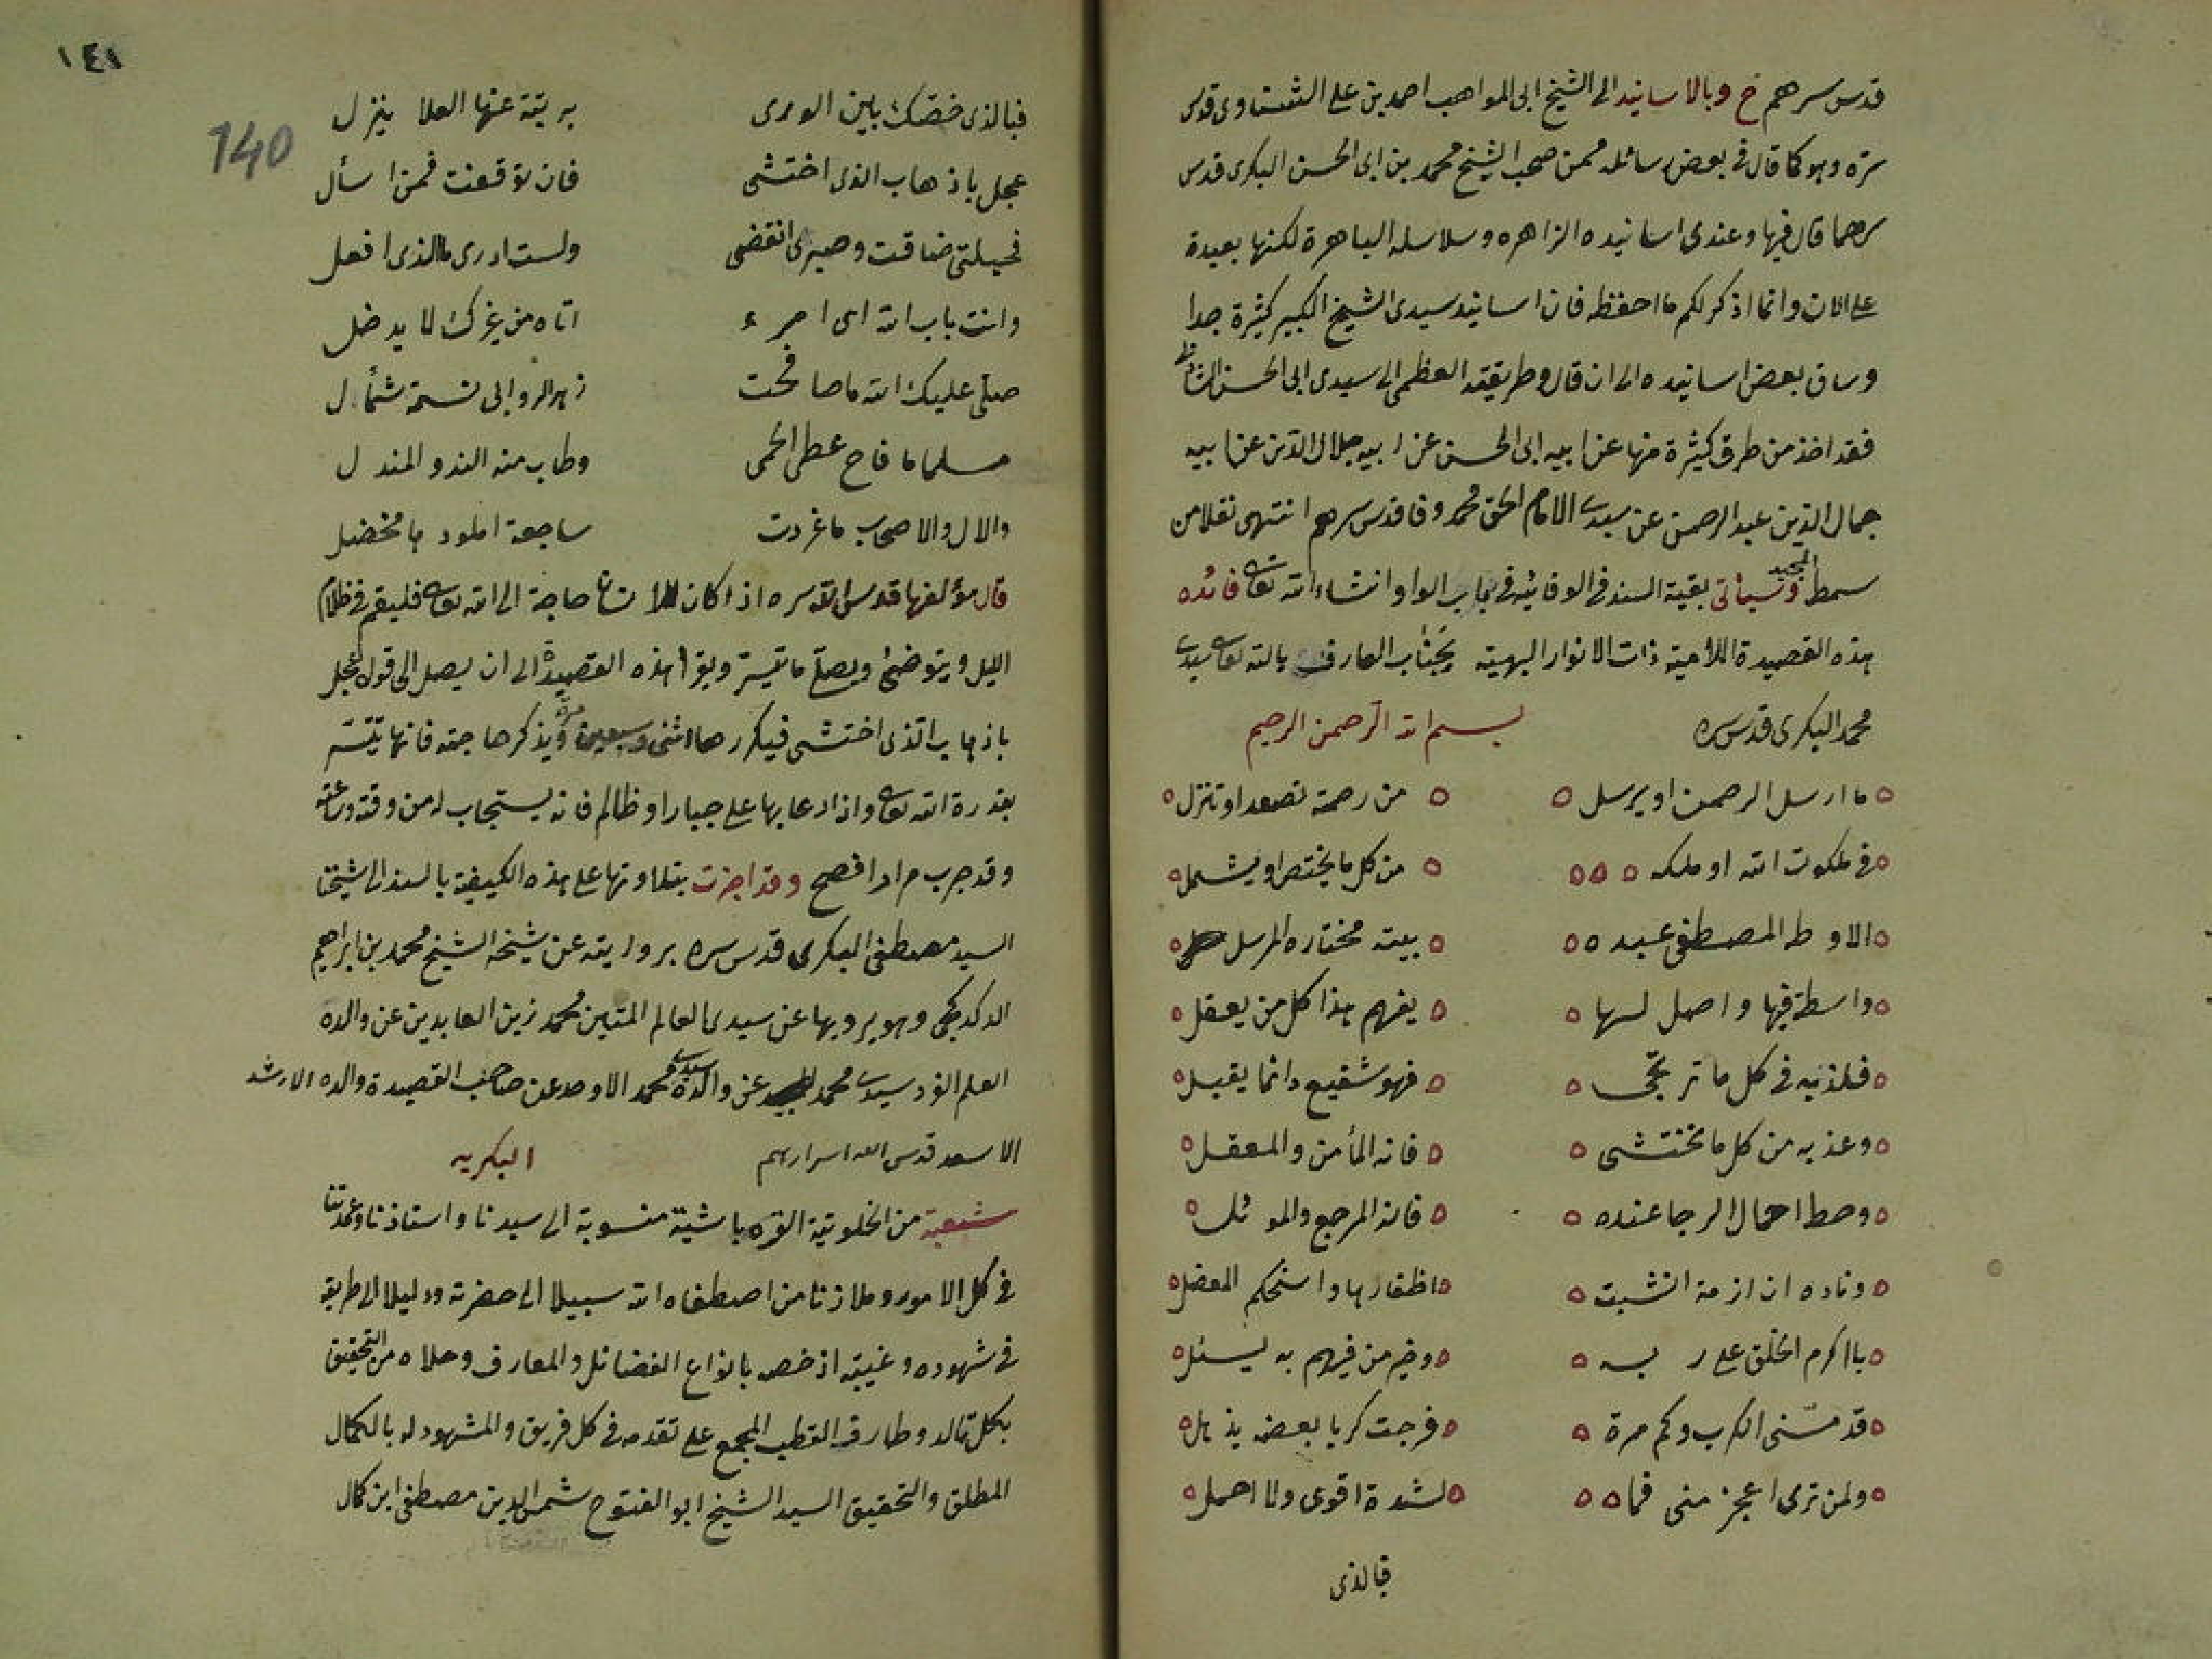 قدس سرهم خ وبالاسانيد الى الشيخ ابى المواهب احمد بن على الشناوى قدس
سره وهو كما قال فى بعض رسائله ممن صحب الشيخ محمد بن ابى الحسن البكرى قدس
سرهما قال فيها وعندى اسانيده الزاهره وسلاسله الباهرة لكنها بعيدة
على الان وانما اذكر لكم ما احفظه فان اسانيد سيدى الشيخ الكبير كثيرة جدا
وساق بعض اسانيده الى ان قال وطريقته العظمى الى سيدى ابى الحسن الشاذلى
فقد اخذ من طرق كثيرة منها عن ابيه ابى الحسن عن ابيه جلال الدين عن ابيه
جمال الدين عبد الرحمن عن سيدى الامام الحق محمد وفا قدس سرهم انتهى نقلا من
سمط المجيد وسيأتى بقية السند فى الوفائيه فى باب الواو انشاء الله تعالى فائده
هذه القصيدة اللامية ذات الانوار البهية بجناب العارف بالله تعالى سيدى
محمد البكرى قدس سره
بسم الله الرحمن الرحيم
ما ارسل الرحمن او يرسل من رحمة تصعد او تنزل
فى ملكوت الله او ملكه من كل ما يختص او يشمل
الا وطه المصطفى عبده بيته مختاره المرسل
واسطة فيها واصل لها يفهم هذا كل من يعقل
فلذ به فى كل ما ترتجى فهو شفيع دائما يقبل
وعذ به من كل ما تختشى فانه المأمن والمعقل
وحط احمال الرجا عنده فانه المرجع والموئل
وناده ان ازمة انشبت اظفارها واستحكم المعضل
يا اكرم الخلق على ربه وخير من فيهم به يسئل
قد مسنى الكرب وكم مرة فرجت كربا بعضه يذهل
ولن ترى اعجز منى فما لشدة اقوى ولا احمل
فبالذى
١٤١
140
فبالذى خصك بين الورى برتبة عنها العلا ينزل
عجل باذهاب الذى اختشى فان توقفت فمن اسأل
فحيلتى ضاقت وصبرى انقضى ولست ادرى ما الذى افعل
وانت باب الله اى امرء اتاه من غيرك لا يدخل
صلى عليك الله ما صافحت زهر الروابى نسمة شمأل
مسلما ما فاح عطر الحمى وطاب منه الند والمندل
والال والاصحاب ما غردت ساجعة املود ها مخضل
قال مؤلفها قدس الله سره اذا كان للانسان حاجة الى الله تعالى فليقم فى ظلام
الليل ويتوضئ ويصلى ما تيسر ويقرأ هذه القصيدة الى ان يصل الى قوله عجل
باذهاب الذى اختشى فيكررها اثنى وسبعين مرة ويذكر حاجته فانها تتيسر
بقدرة الله تعالى واذا دعا بها على جبار او ظالم فانه يستجاب له من وقته وساعته
وقد جرب مرارا فصح وقد اجزت بتلاوتها على هذه الكيفية بالسند الى شيخنا
السيد مصطفى البكرى قدس سره بروايته عن شيخه الشيخ محمد بن ابراهيم
الدكدكجى وهو يرويها عن سيدى العالم المتين محمد زين العابدين عن والده
العلم الفرد سيدى محمد عن والده سيدى محمد الاوحد عن صاحب القصيدة والده الارشد
الاسعد قدس الله اسرارهم البكريه
شعبة من الخلوتية القره باشية منسوبة الى سيدنا واستاذنا وعمدتنا
فى كل الامور وملاذنا من اصطفاه الله سبيلا الى حضرته ودليلا الى طريقه
فى شهوده وغيبته اذ خصه بانواع الفضائل والمعارف وحلاه من التحقيق
بكل تالد وطارف القطب المجمع على تقدمه فى كل فريق والمشهود له بالكمال
المطلق والتحقيق السيد الشيخ ابو الفتوح شمس الدين مصطفى ابن كمال